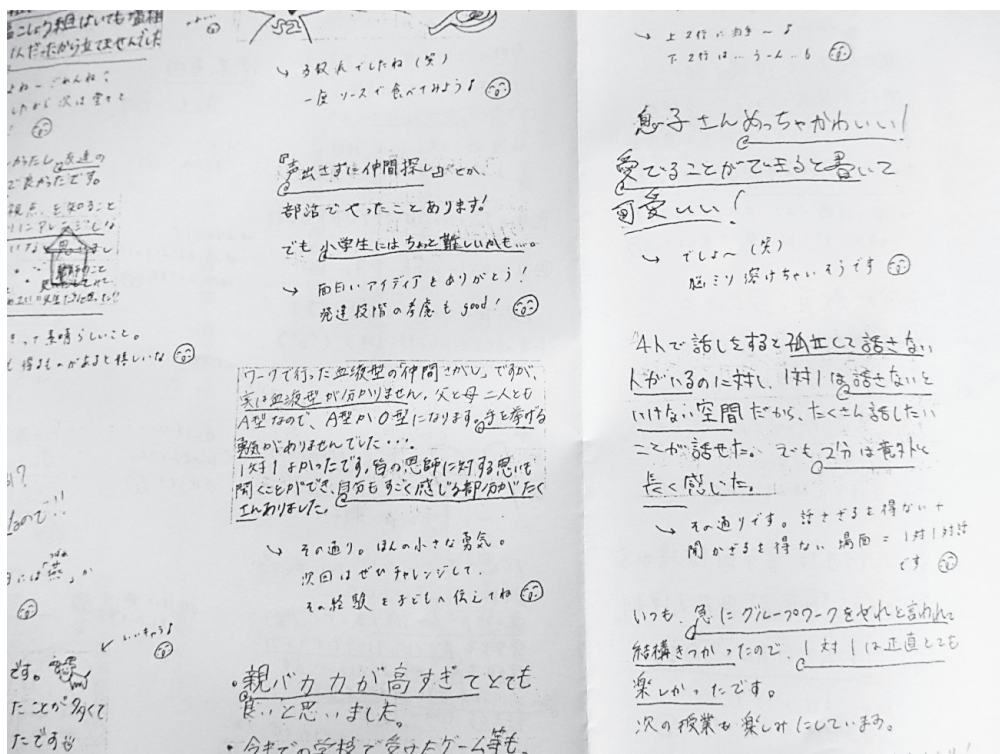 こしょう
だったから立てませんでした
よねー ごめんね
したから 次は
友達の
で良かったです。
視点、を知ること
アレンジ
って素晴らしいこと。
得るものがあると嬉しいな
なので!!
には「
いいちゃう♪
です。
たことが多くて
たです
52
↳ 一度 ソースで食べてみよう♪
『声出さずに仲間探し』とか、
部活でやったことあります!
でも 小学生にはちょっと難しいかも…。
↳ 面白いアイディアをありがとう!
発達段階の考慮も good!
ワークで行った「血液型の仲間さがし」ですが、
実は血液型が分かりません。父と母二人とも
A型なので、A型かO型になります。手を挙げる
勇気がありませんでした・・・。
1対1よかったです。皆の恩師に対する思いも
聞くことができ、自分もすごく感じる部分がたく
さんありました。
↳ その通り。ほんの小さな勇気。
次回はぜひチャレンジして、
その経験を子どもへ伝えてね
・親バカ力が高すぎてとても
良いと思いました。
・今までの学校で受けたゲーム等も、
↳ 上2行に拍手〜♪
下2行は…うーん…
息子さんめっちゃかわいい!
愛でることができると書いて
可愛いい!
↳ でしょ〜(笑)
脳ミソ溶けちゃいそうです
4人で話しをすると孤立して話さない
人がいるのに対し、1対1は話さないと
いけない空間だから、たくさん話したい
ことが話せた。でも、2分は意外と
長く感じた。
↳ その通りです。話さざるを得ない+
聞かざるを得ない場面=1対1対話
です
いつも、急にグループワークをやれと言われて
結構きつかったので、1対1は正直とても
楽しかったです。
次の授業も楽しみにしています。